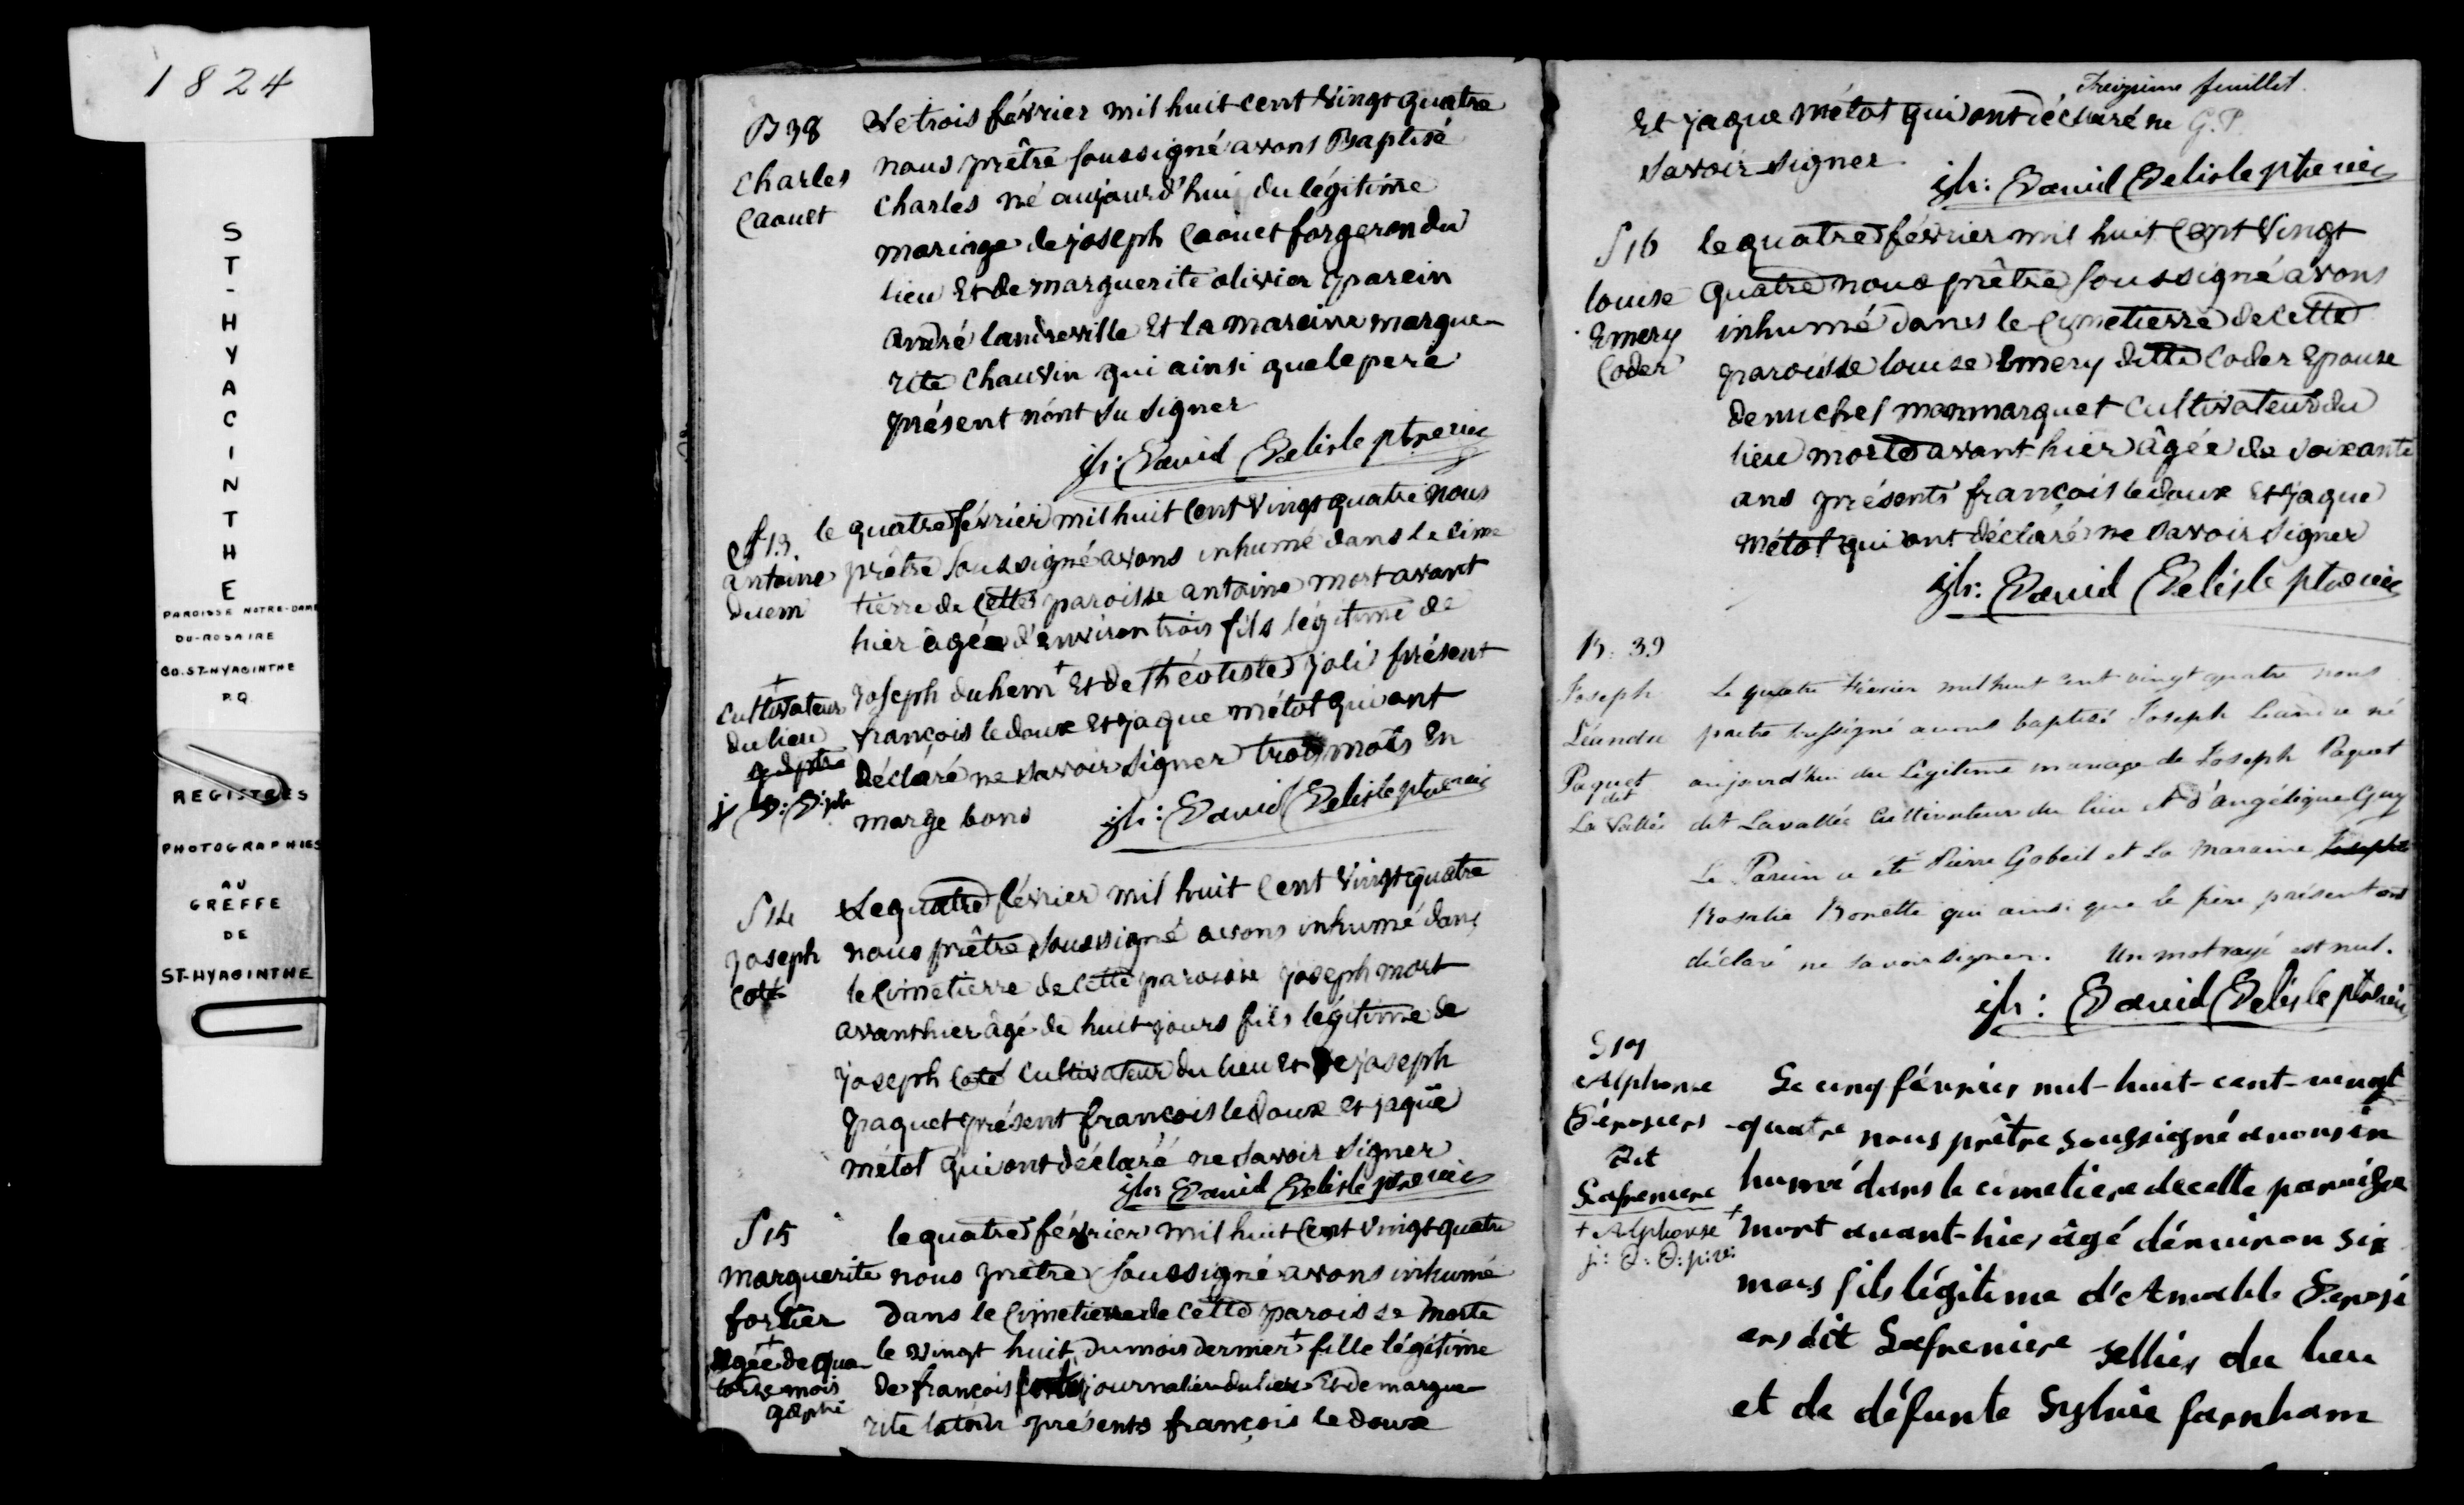 1824
ST-HYACINTHE
PAROISSE NOTRE-DAME
DU-ROSAIRE
CO. ST-HYACINTHE
P.Q.
REGISTRES
PHOTOGRAPHIES
AU
GREFFE
DE
ST-HYACINTHE
B 38
Charles
Caouet
Le trois février mil huit cent vingt quatre
nous prêtre soussigné avons Baptisé
Charles né aujourd'hui du légitime
mariage de joseph Caouet forgeron du
lieu Et de marguerite olivier parein
andré landreville Et la mareine margue-
rite Chauvin qui ainsi que le pere
présent n'ont su signer
jh: David Delisle ptre
S 13.
antoine
duem
+
cultivateur
du lieu
le quatre février mil huit Cent vingt quatre nous
prêtre soussigné avons inhumé dans le cime
tierre de Cette paroisse antoine mort avant
hier âgée d'environ trois fils légitime de
joseph duhem + Et de théotiste joli présent
françois ledoux Et jaque métot qui ont
déclaré ne savoir signer trois mots En
marge bons jh: David Delisle ptre
S 14
joseph
Coté
Le quatre février mil huit Cent vingt quatre
nous prêtre soussigné avons inhumé dans
le Cimetierre de Cette paroisse joseph mort
avant hier âgé de huit jours fils légitime de
joseph Coté Cultivateur du lieu Et de joseph
paquet présent françois ledoux Et jaque
métot qui ont déclaré ne savoir signer
jh: David Delisle ptre
S 15
marguerite
fortier
+
agée de qua-
torze mois
le quatre février mil huit Cent vingt quatre
nous prêtre soussigné avons inhumé
Dans le Cimetierre de Cette paroisse Morte
le vingt huit du mois dernier + fille légitime
de françois journalier du lieu Et de margue-
rite présents françois le doux
Treizième feuillet
Et jaque métot qui ont déclaré ne G.P.
savoir signer
jh: David Delisle ptre
S 16
louise
Emery
Coder
le quatre février mil huit Cent vingt
quatre nous prêtre soussigné avons
inhumé dans le Cimetierre de Cette
paroisse louise Emery ditte Coder Epouse
de michel monmarquet Cultivateur du
lieu morte avant hier âgée de soixante
ans présents françois ledoux Et jaque
métot qui ont déclaré ne savoir signer
jh: David Delisle ptre
B. 39
Joseph
Léandre
Paquet
dit
La Vallée
Le quatre Février mil huit cent vingt quatre nous
prêtre soussigné avons baptisé Joseph Léandre né
aujourd'hui du Légitime mariage de Joseph Paquet
dit Lavallée Cultivateur du lieu et d'angélique Guy
Le Parein a été Pierre Gobeil et La Maraine
Rosalie Bonette qui ainsi que le père présent ont
déclaré ne savoir signer. Un mot rayé est nul.
jh: David Delisle ptre
S 17
Alphonse
Désrosiers
dit
Lafreniere
+ Alphonse
j: D: D: p:re:
Le cinq février mil-huit-cent-vingt
-quatre nous prêtre soussigné avons in
humé dans le cimetiere de cette paroisse
+ mort avant-hier âgé d'environ six
mois fils légitime d'Amable Desrosi
ers dit Lafreniere sellier du lieu
et de défunte Sylvie farnham